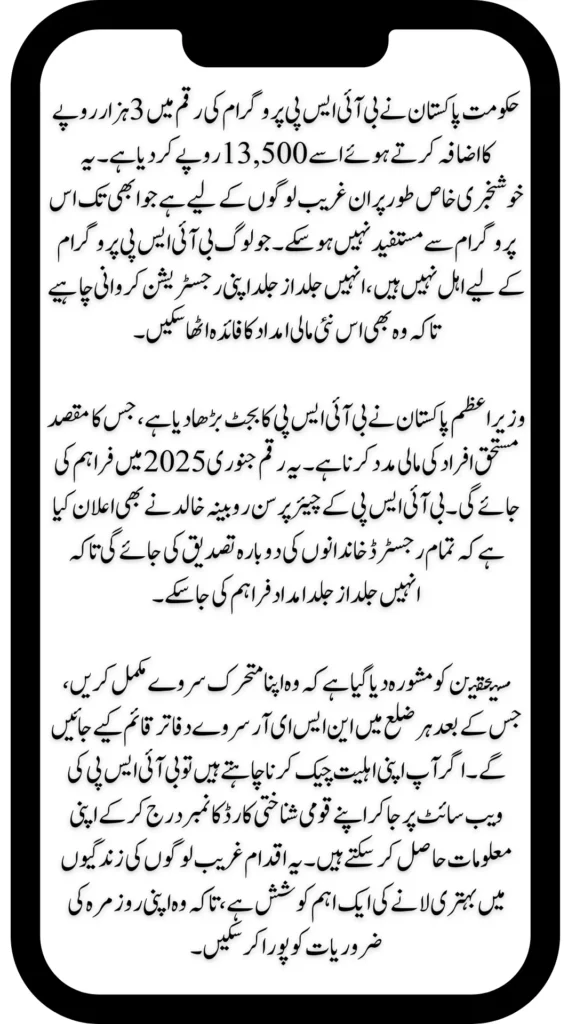 حکومت پاکستان نے بی آئی ایس پی پروگرام کی رقم میں 3 ہزار روپے
کا اضافہ کرتے ہوئے اسے 13,500 روپے کر دیا ہے۔ یہ
خوشخبری خاص طور پر ان غریب لوگوں کے لیے ہے جو ابھی تک اس
پروگرام سے مستفید نہیں ہو سکے۔ جو لوگ بی آئی ایس پی پروگرام
کے لیے اہل نہیں ہیں، انہیں جلد از جلد اپنی رجسٹریشن کروانی چاہیے
تاکہ وہ بھی اس نئی مالی امداد کا فائدہ اٹھا سکیں۔
وزیراعظم پاکستان نے بی آئی ایس پی کا بجٹ بڑھا دیا ہے، جس کا مقصد
مستحق افراد کی مالی مدد کرنا ہے۔ یہ رقم جنوری 2025 میں فراہم کی
جائے گی۔ بی آئی ایس پی کے چیئرپرسن روبینہ خالد نے بھی اعلان کیا
ہے کہ تمام رجسٹرڈ خاندانوں کی دوبارہ تصدیق کی جائے گی تاکہ
انہیں جلد از جلد امداد فراہم کی جا سکے۔
کو مشورہ دیا گیا ہے کہ وہ اپنا متحرک سروے مکمل کریں،
جس کے بعد ہر ضلع میں این ایس ای آر سروے دفاتر قائم کیے جائیں
گے۔ اگر آپ اپنی اہلیت چیک کرنا چاہتے ہیں تو بی آئی ایس پی کی
ویب سائٹ پر جا کر اپنے قومی شناختی کارڈ کا نمبر درج کر کے اپنی
معلومات حاصل کر سکتے ہیں۔ یہ اقدام غریب لوگوں کی زندگیوں
میں بہتری لانے کی ایک اہم کوشش ہے، تاکہ وہ اپنی روزمرہ کی
ضروریات کو پورا کر سکیں۔